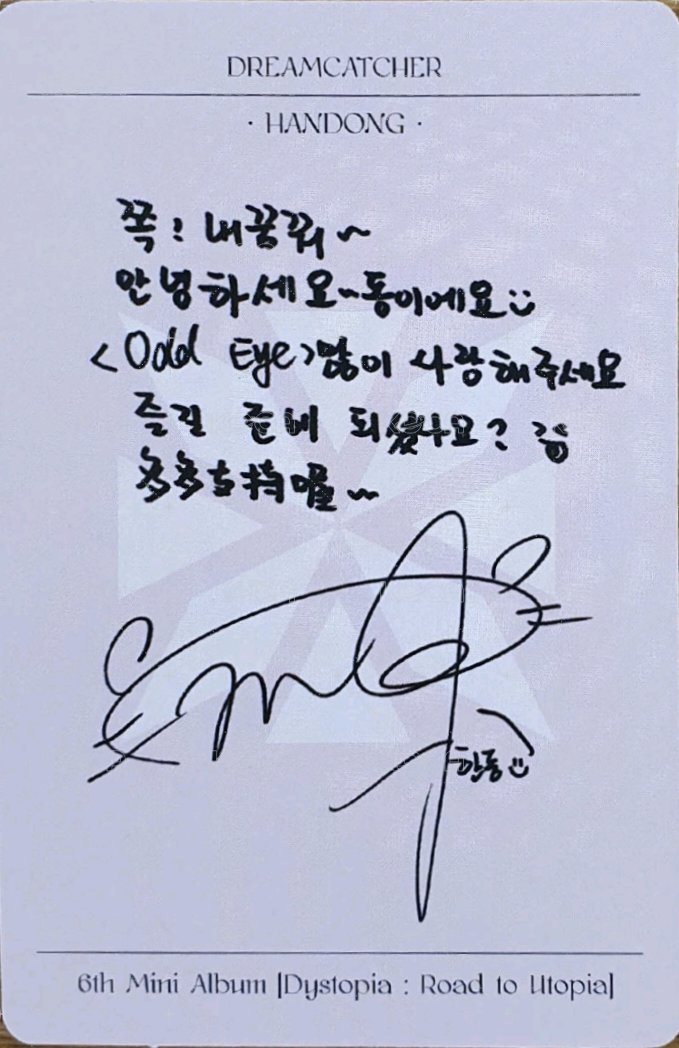 DREAMCATCHER
· HANDONG ·
쪽! 내꿈꿔~
안녕하세요~동이에요
<Odd Eye>많이 사랑해주세요
즐길 준비 되셨나요?
多多支持喔~
한동
6th Mini Album [Dystopia : Road to Utopia]